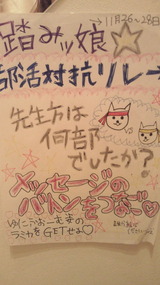 →11月26~28日
踏みッ娘☆
部活対抗リレー
先生方は
何部
でしたか?
VS
メッセージの
バトンをつなご♡
ラミカをGETせよ♡